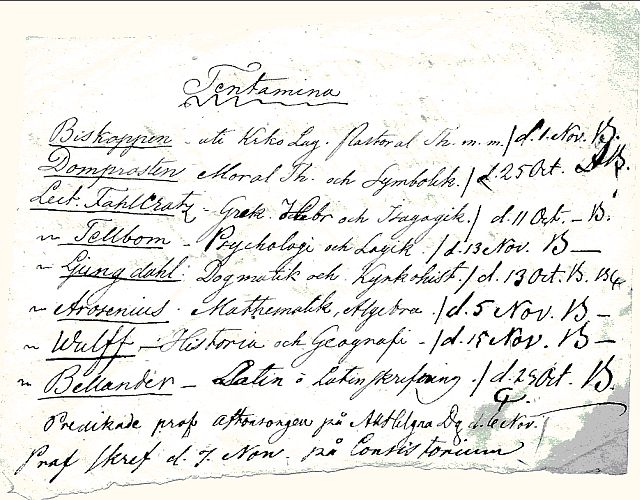 Tentamina
Biskoppen - uti Kiko Lag. Pastoral Th. m. m. / d. 1. Nov. B.
Domprosten Moral Th. och Symbolik. / d. 25 Oct. AB.
Lect. Fahlcratz - Grek Hebr och Isagogik. / d. 11 Oct. - B.
" Tellbom - Psychologi och Logik. / d. 13 Nov. B —
" Ljungdahl. Dogmatik och Kyrkohist. / d. 13 Oct. B.
" Arosenius. Mathematik, Algebra. / d. 5 Nov. B —
" Wulff - Historia och Geografi - / d. 15 Nov. B —
" Bellander - Latin o Latinskrifning. / d. 29 Oct. B.
Predikade prof aftonsången på Alla Helgona Dg d. 6 Nov.
Prof skref d. 7. Nov. på Consistorium